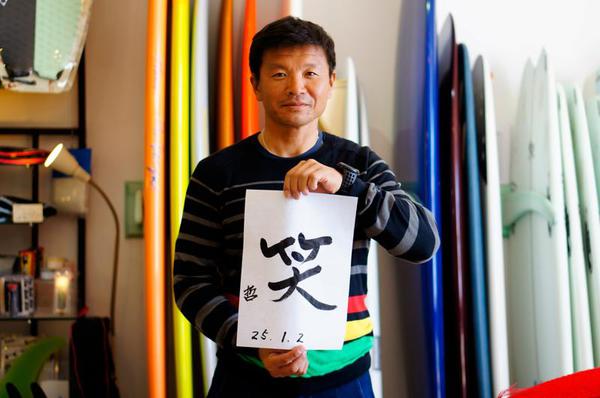 笑
哲
25.1.2